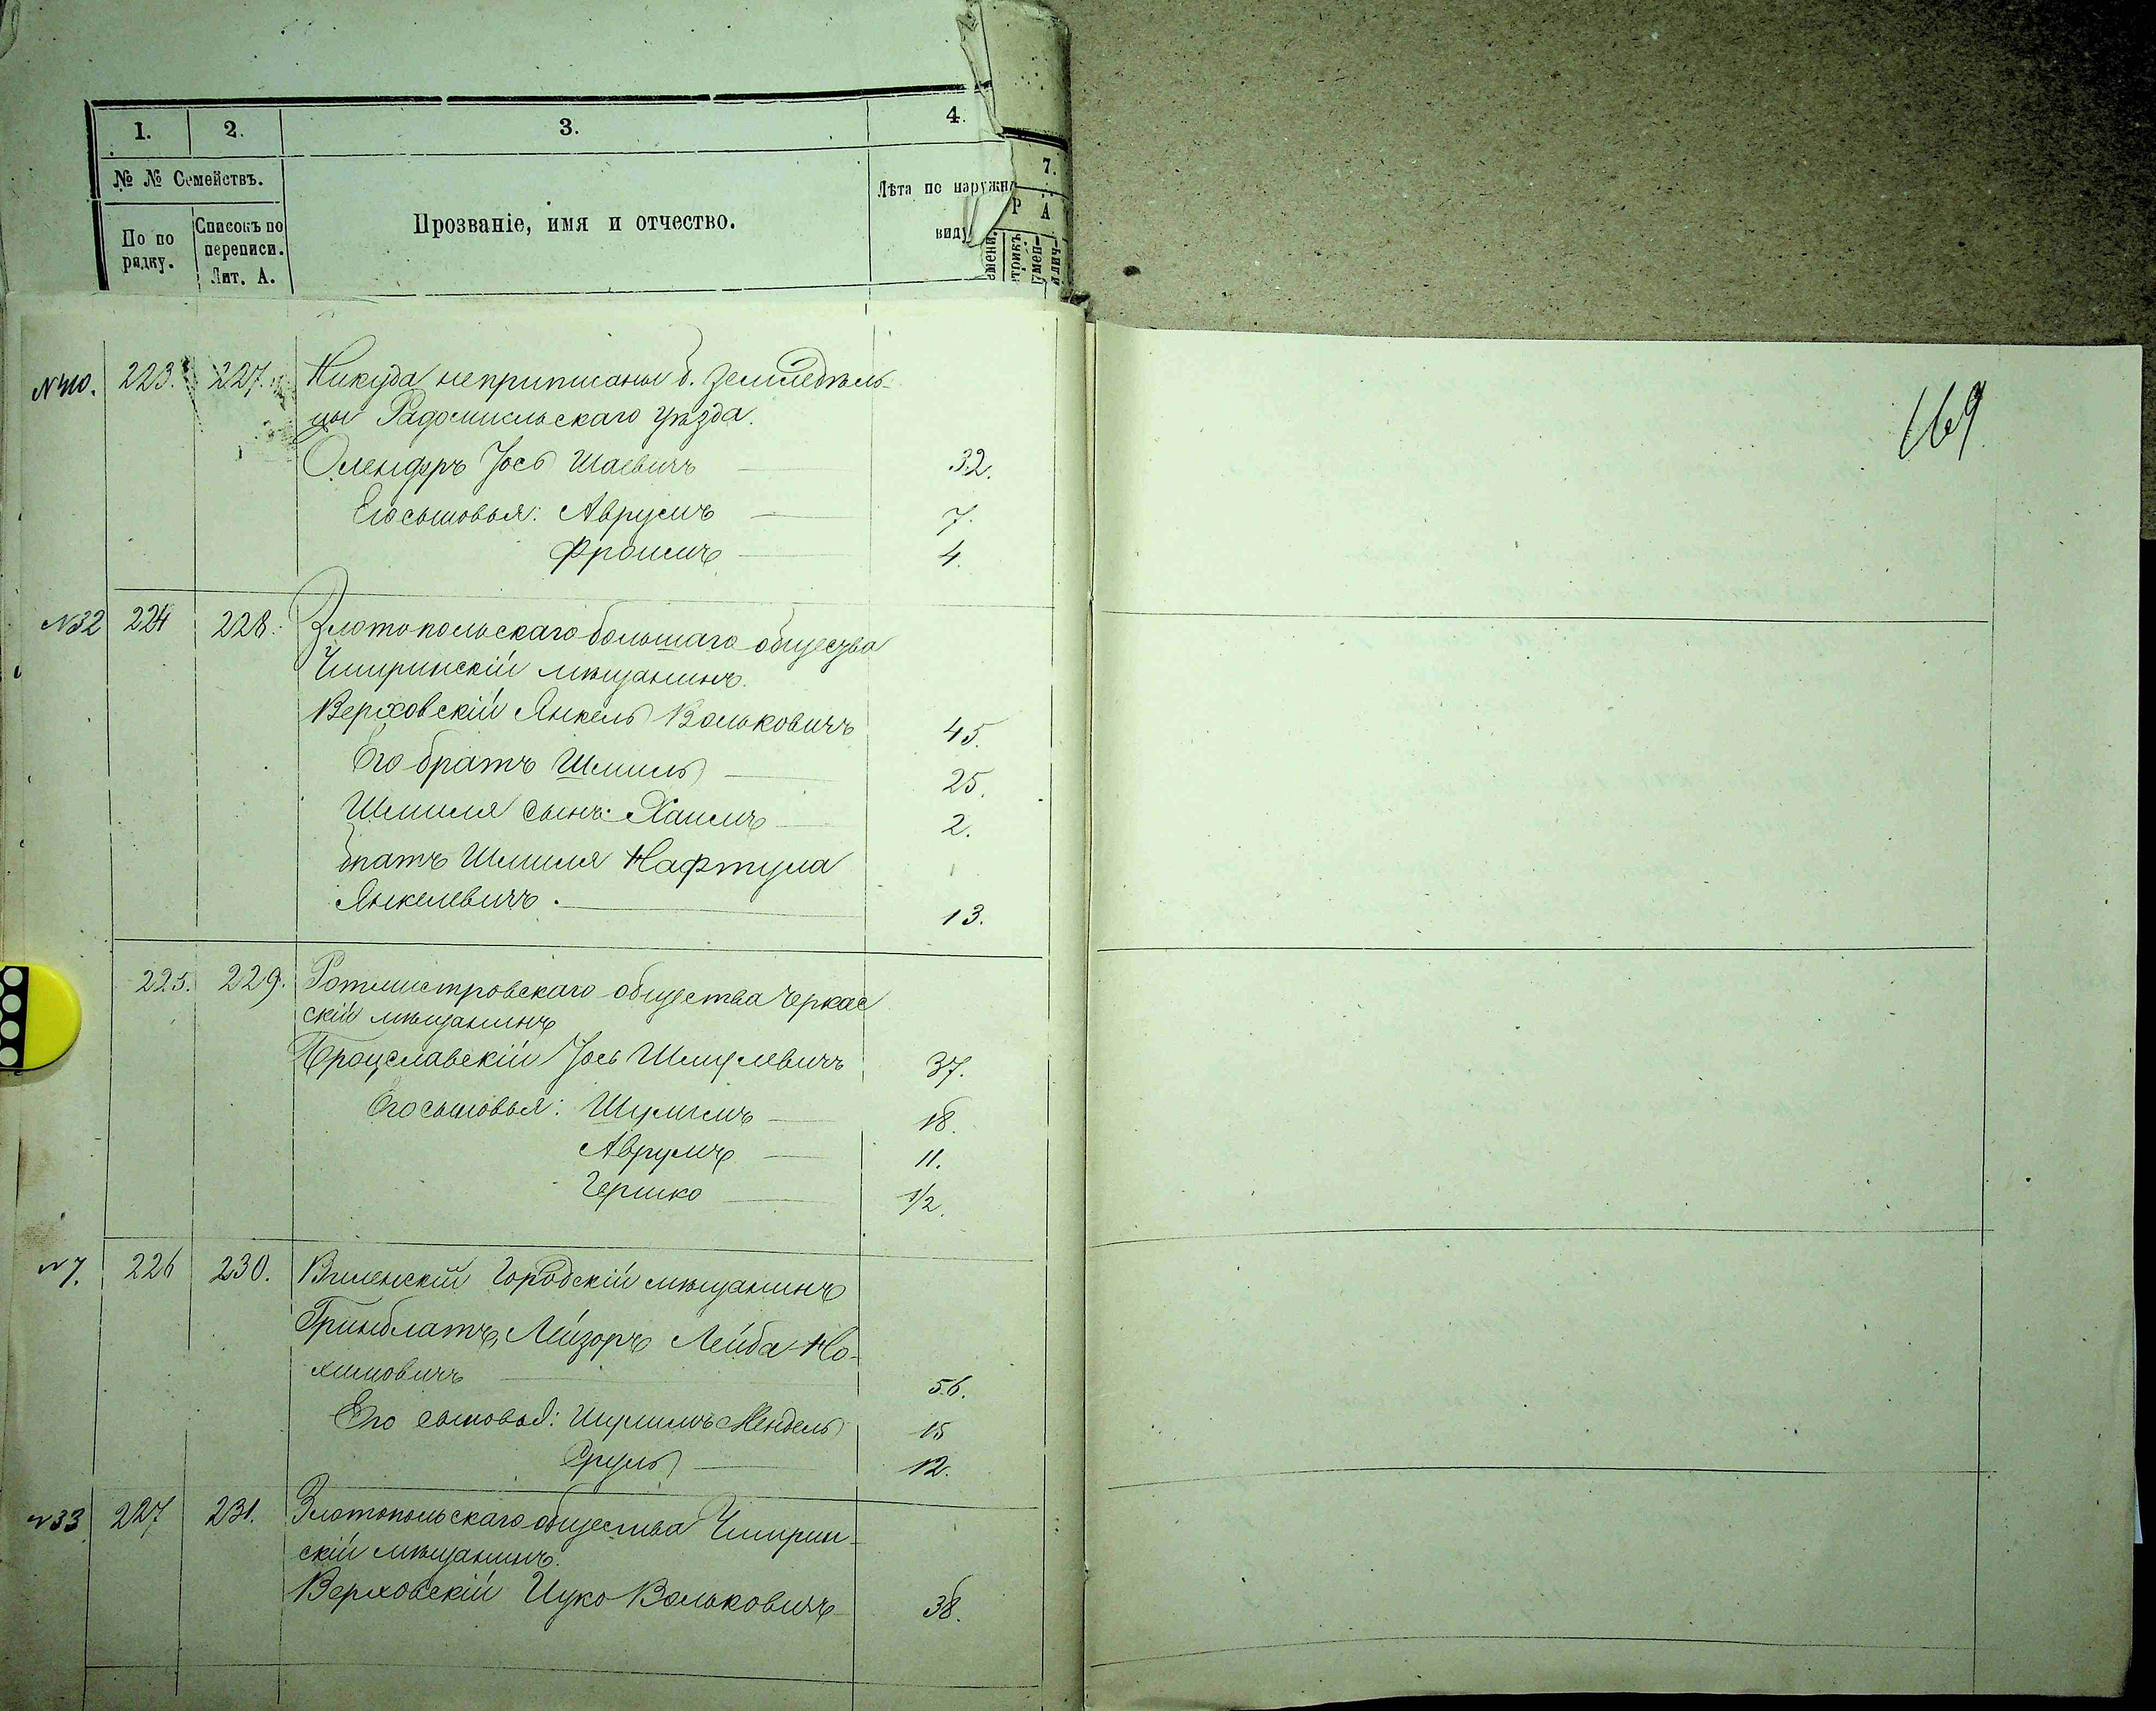 1. 2. 3. 4.
7.
№ № Семействъ.
Лѣта по наружн
Р А
По по рядку.
Списокъ по переписи. Лит. А.
Прозваніе, имя и отчество.
виду
№40. 223. 227. Никуда неприписаны б. земледѣль-
цы Радомисльскаго уѣзда.
Олендеръ Іось Шаевичъ 32.
Его сыновья: Аврумъ 7.
Фроимъ 4.
169
№32 224 228. Златопольскаго большаго общества
Чигиринскій мѣщанинъ.
Верховскій Янкель Вольковичъ 45.
Его братъ Шмиль 25.
Шмиля сынъ: Хаимъ 2.
братъ Шмиля Нафтула
Янкелевичъ. 13.
225. 229. Ротмистровскаго общества Черкас
скій мѣщанинъ
Броцславскій Іось Шмулевичъ 37.
Его сыновья: Шулимъ 18.
Аврумъ 11.
Гершко 1/2.
№7. 226 230. Виленскій Городскій мѣщанинъ
Гринблатъ, Лейзоръ Лейба Но-
химовичъ 56.
Его сыновья: Шулимъ Мендель 15
Сруль 12.
№33 227 231. Златопольскаго общества Чигирин-
скій мѣщанинъ.
Верховскій Ицко Вольковичъ 38.